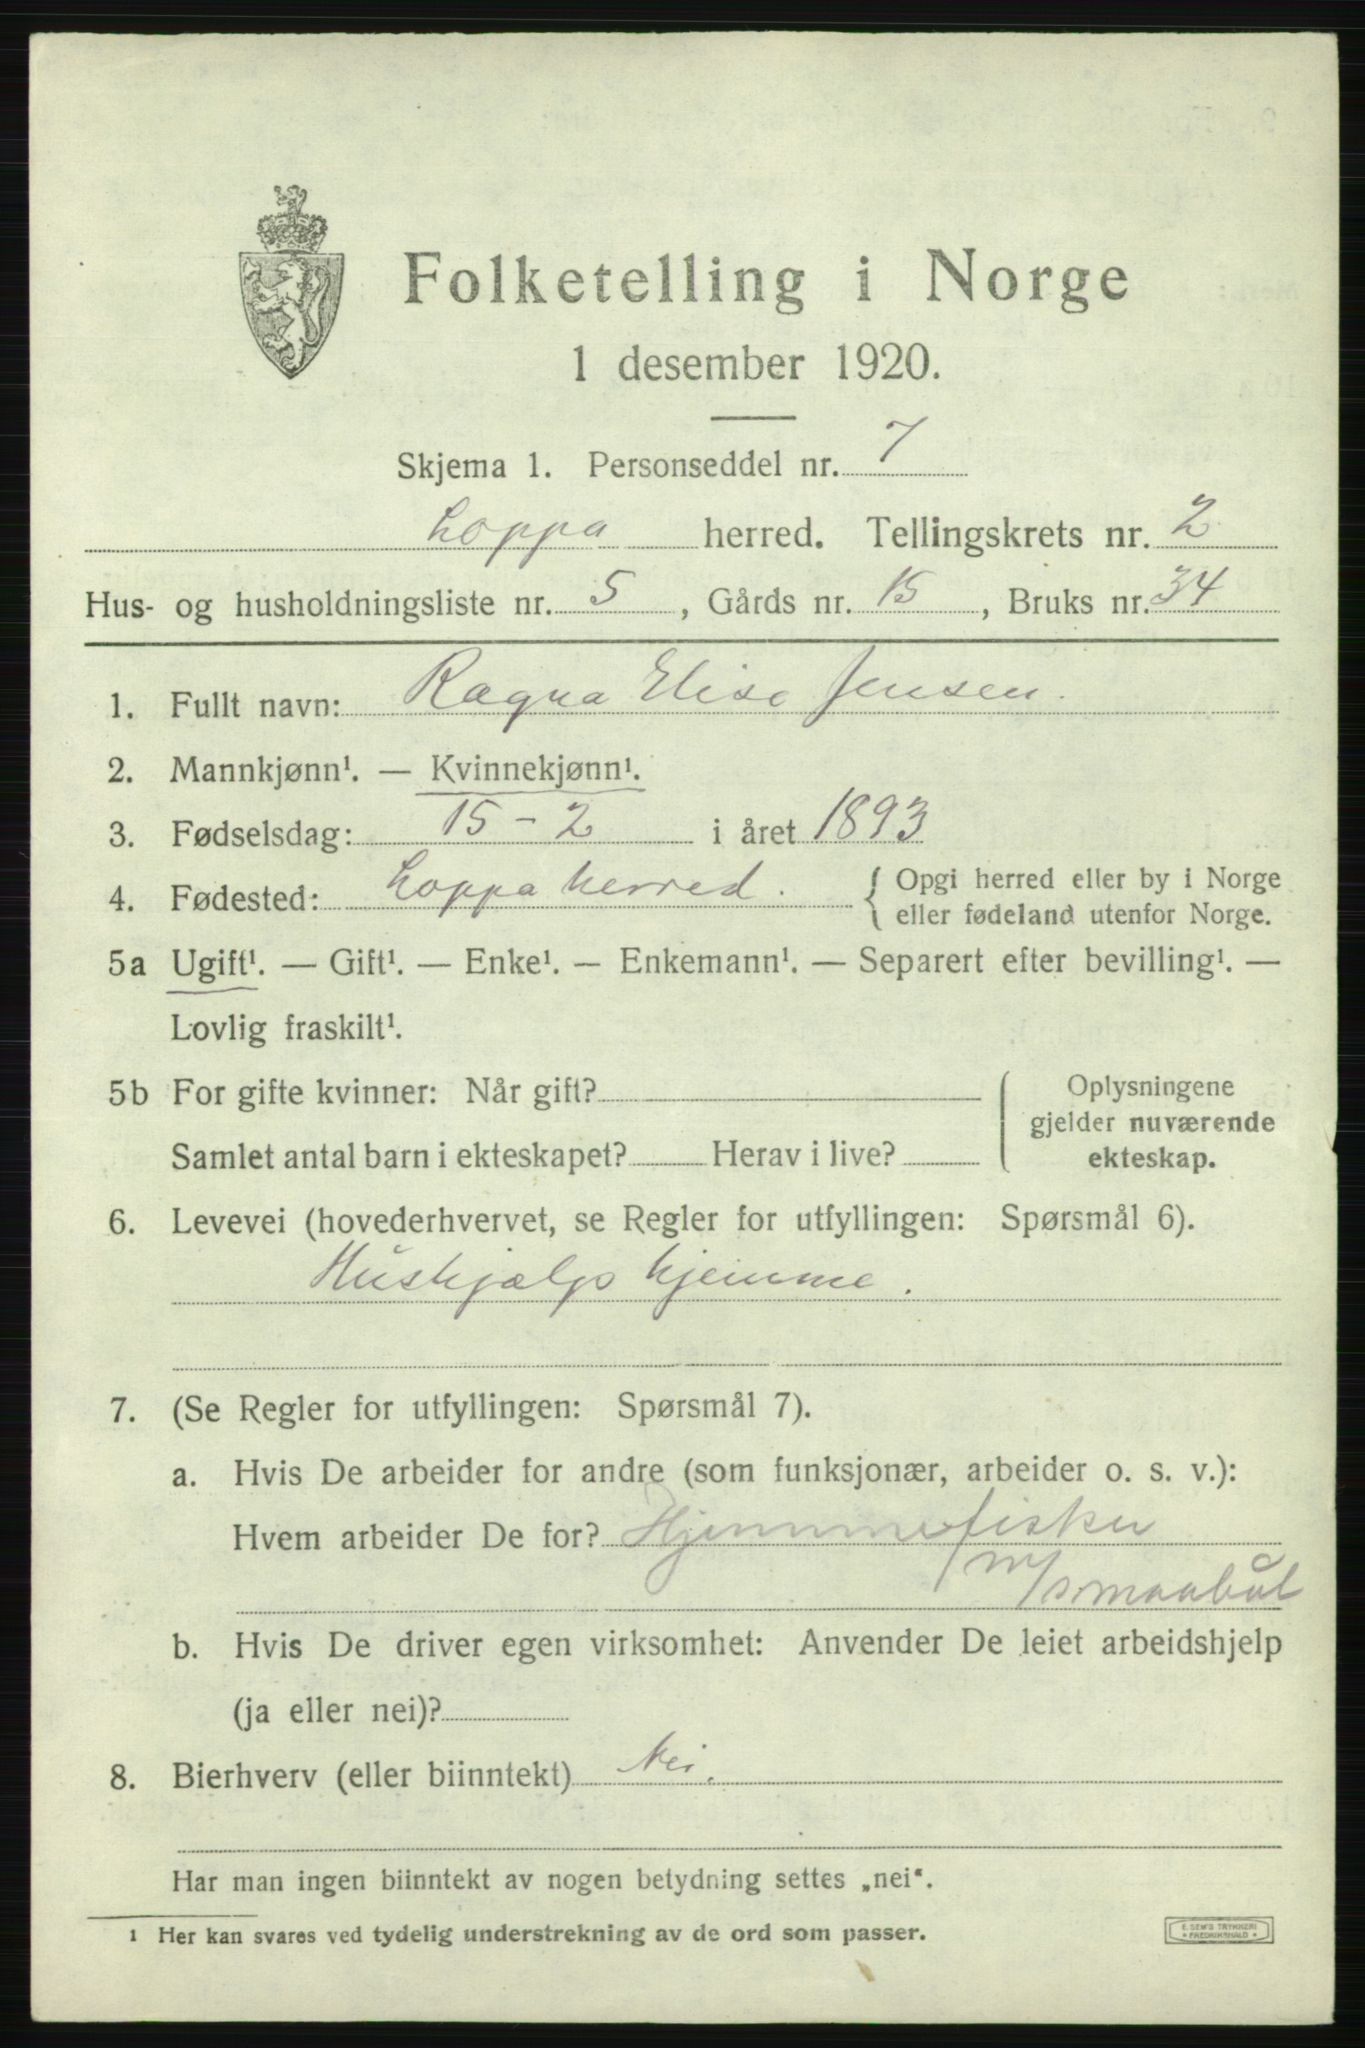 Folketelling i Norge
1 desember 1920.
Skjema 1. Personseddel nr. 7
Loppa herred. Tellingskrets nr. 2
Hus- og husholdningsliste nr. 5, Gårds nr. 15, Bruks nr. 34
1. Fullt navn: Ragna Elise Jensen.
2. Mannkjønn¹. — Kvinnekjønn¹.
3. Fødselsdag: 15-2 i året 1893
4. Fødested: Loppa herred. { Opgi herred eller by i Norge
eller fødeland utenfor Norge.
5a Ugift¹. — Gift¹. — Enke¹. — Enkemann¹. — Separert efter bevilling¹. —
Lovlig fraskilt¹.
5b For gifte kvinner: Når gift? Oplysningene
gjelder nuværende
Samlet antal barn i ekteskapet? Herav i live? ekteskap.
6. Levevei (hovederhvervet, se Regler for utfyllingen: Spørsmål 6).
Hushjælp hjemme.
7. (Se Regler for utfyllingen: Spørsmål 7).
a. Hvis De arbeider for andre (som funksjonær, arbeider o. s. v.):
Hvem arbeider De for? Hjemmefisker
m/smaabruk
b. Hvis De driver egen virksomhet: Anvender De leiet arbeidshjelp
(ja eller nei)?
8. Bierhverv (eller biinntekt) Nei.
Har man ingen biinntekt av nogen betydning settes „nei“.
1 Her kan svares ved tydelig understrekning av de ord som passer.
E. SEM'S TRYKKERI
FREDRIKSHALD